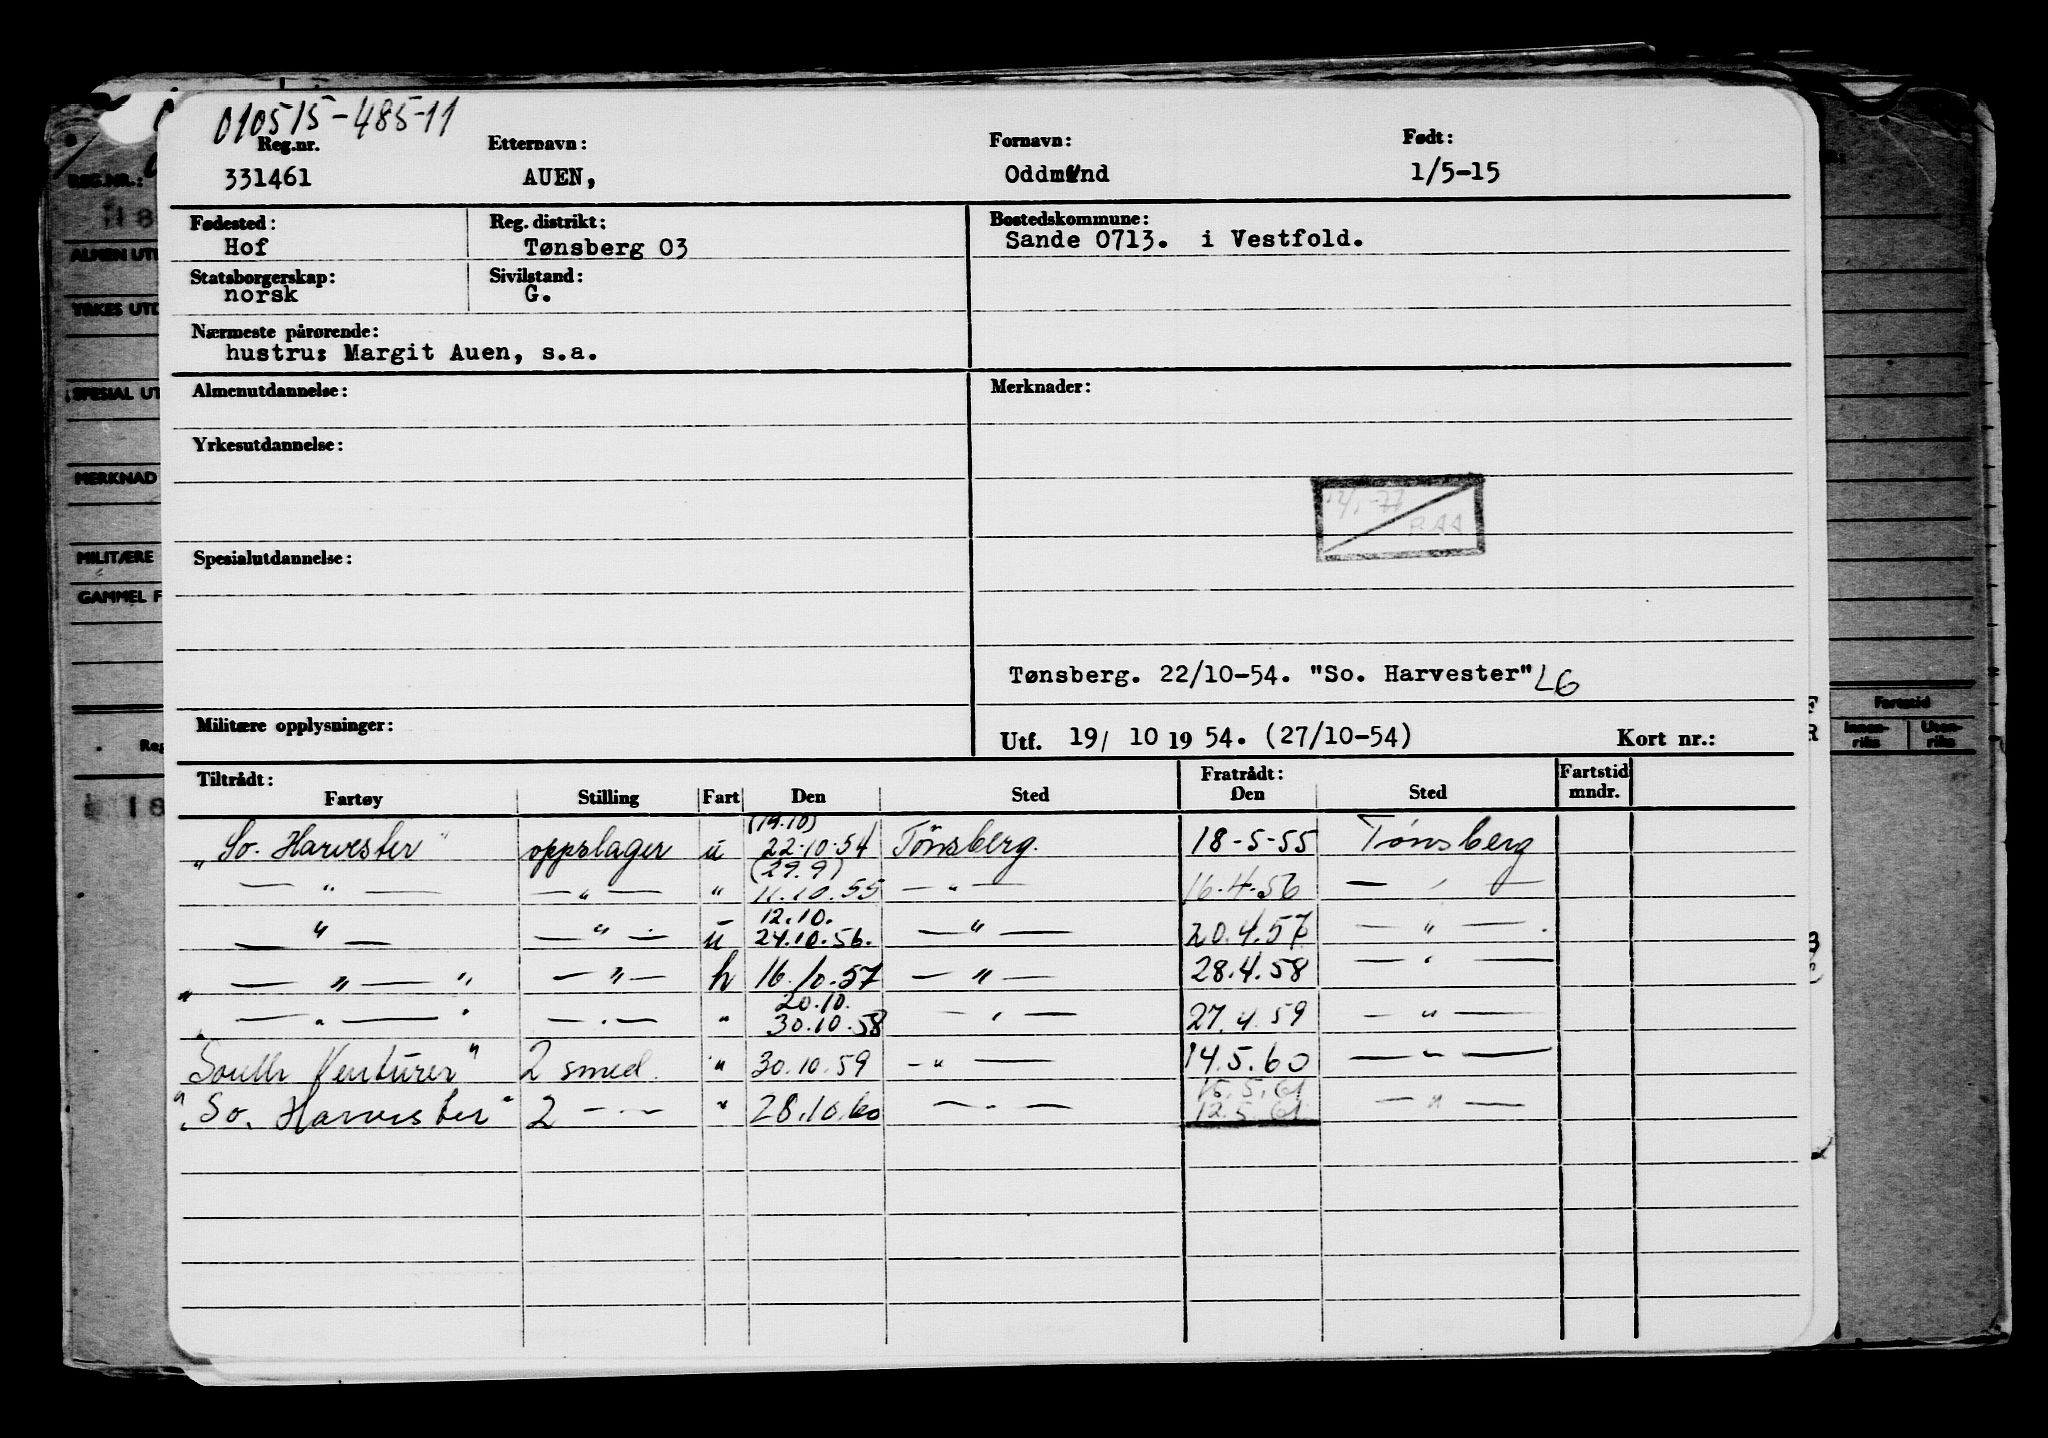 010515-485-11
Reg.nr. Etternavn: Fornavn: Født:
331461 AUEN, Oddmund 1/5-15
Fødested: Reg. distrikt: Bostedskommune:
Hof Tønsberg 03 Sande 0713. i Vestfold.
Statsborgerskap: Sivilstand:
norsk G.
Nærmeste pårørende:
hustru: Margit Auen, s.a.
Almenutdannelse: Merknader:
Yrkesutdannelse:
Spesialutdannelse:
Tønsberg. 22/10-54. "So. Harvester" LG
Militære opplysninger:
Utf. 19/ 10 19 54. (27/10-54) Kort nr.:
Tiltrådt: Fratrådt: Fartstid
Fartøy Stilling Fart Den Sted Den Sted mndr.
(19.10)
„So. Harvester" oppslager u 22.10.54 Tönsberg. 18-5-55 Tönsberg
(29.9)
— " — — " — " 11.10.55 — " — 16.4.56 — " —
12.10.
— " — — " — u 24.10.56. — " — 20.4.57 — " —
„ — " — " — " — h 16.10.57 — " — 28.4.58 — " —
20.10.
„ — " — " — " — " 30.10.58 — " — 27.4.59 — " —
South Venturer" 2 smed. " 30.10.59 — " — 14.5.60 — " —
15.5.61
"So. Harvester" 2 — " — " 28.10.60 — " — 12.5.61 — " —
REG.NR.:
118
ALMEN UTD
YRKES UTD
SPESIAL UT
MERKNAD
MILITÆRE
GAMMEL F
Reg
18
Fartstid
Innen-
riks
Uten-
riks